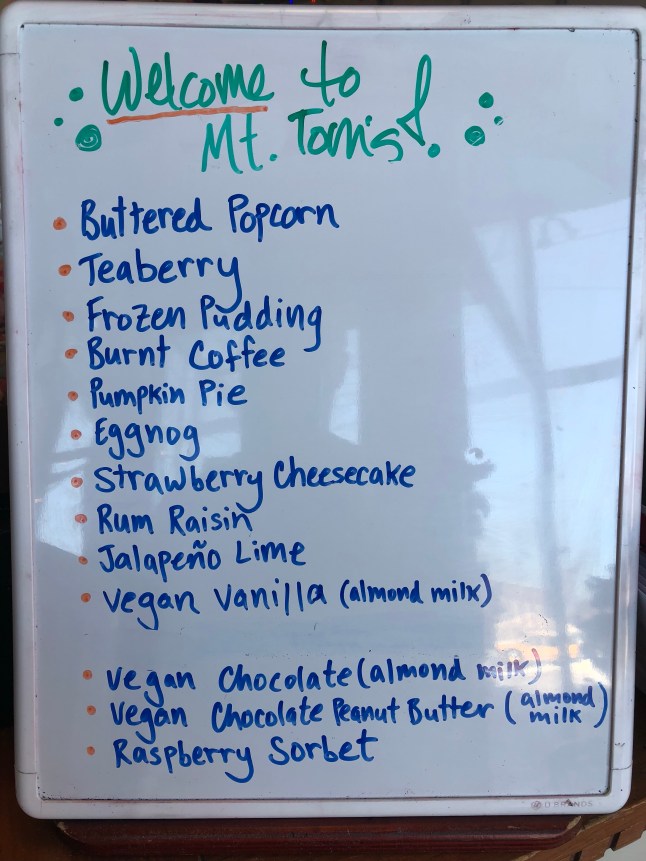 Welcome to
Mt. Tom's!
• Buttered Popcorn
• Teaberry
• Frozen Pudding
• Burnt Coffee
• Pumpkin Pie
• Eggnog
• Strawberry Cheesecake
• Rum Raisin
• Jalapeño Lime
• Vegan Vanilla (almond milk)
• Vegan Chocolate (almond milk)
• Vegan Chocolate Peanut Butter (almond milk)
• Raspberry Sorbet